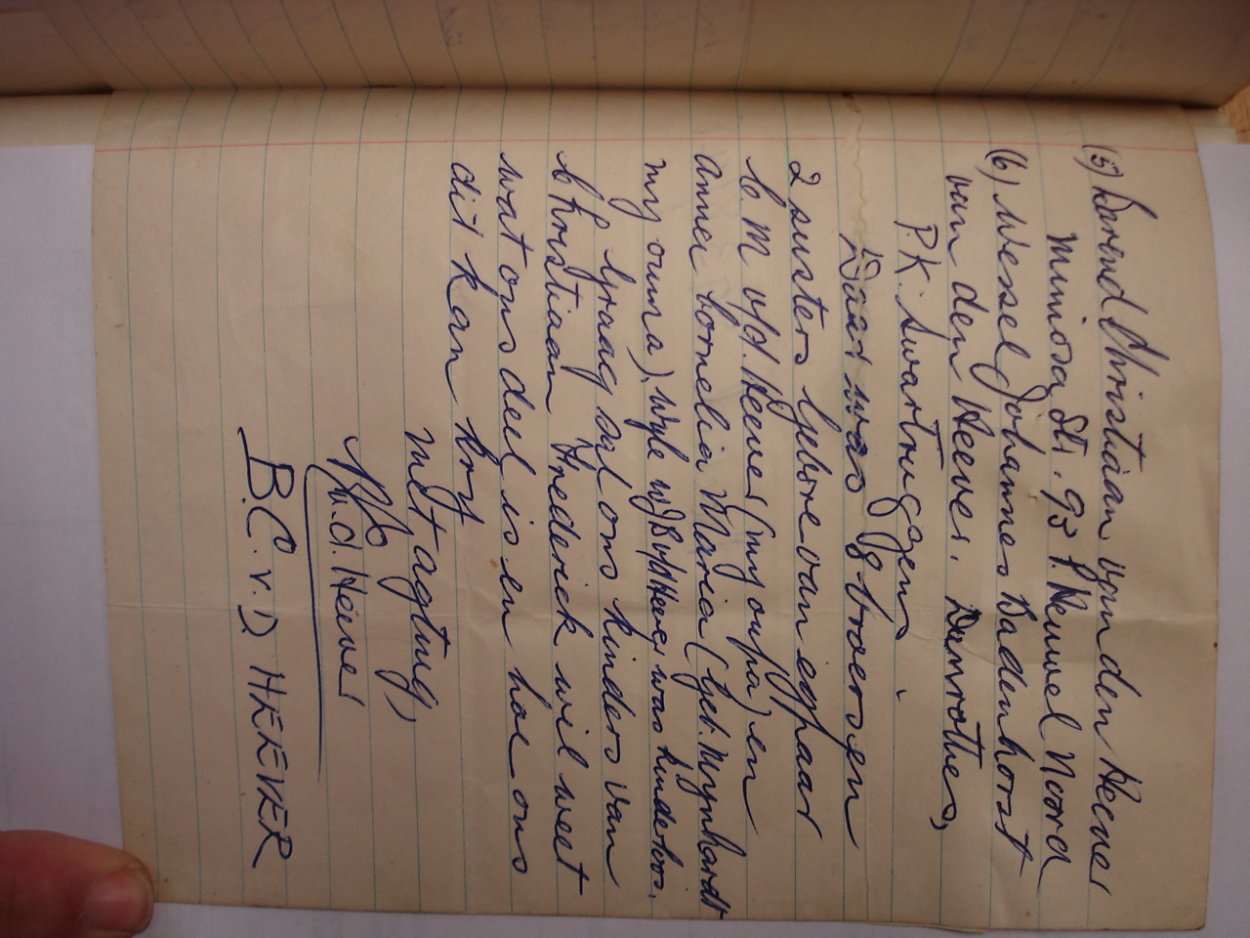 (5) Barend Christiaan van den Heever
Mimosa Str. 93 P. Heuwel Noord
(6) Wessel Johannes Badenhorst
van den Heever. Dunrothes,
P.K. Swartruggens
Daar was 8 broers en
2 susters gebore van egpaar
C. M v/d. Heever (my oupa) en
Anna Cornelia Maria (geb. Mynhardt
my ouma), Wyle WJB v/d Heever was kinderloos.
Graag sal ons kinders van
Christiaan Frederick wil weet
wat ons deel is en hoe ons
dit kan kry
Met agting,
v.d. Heever
B.C. v. D HEEVER